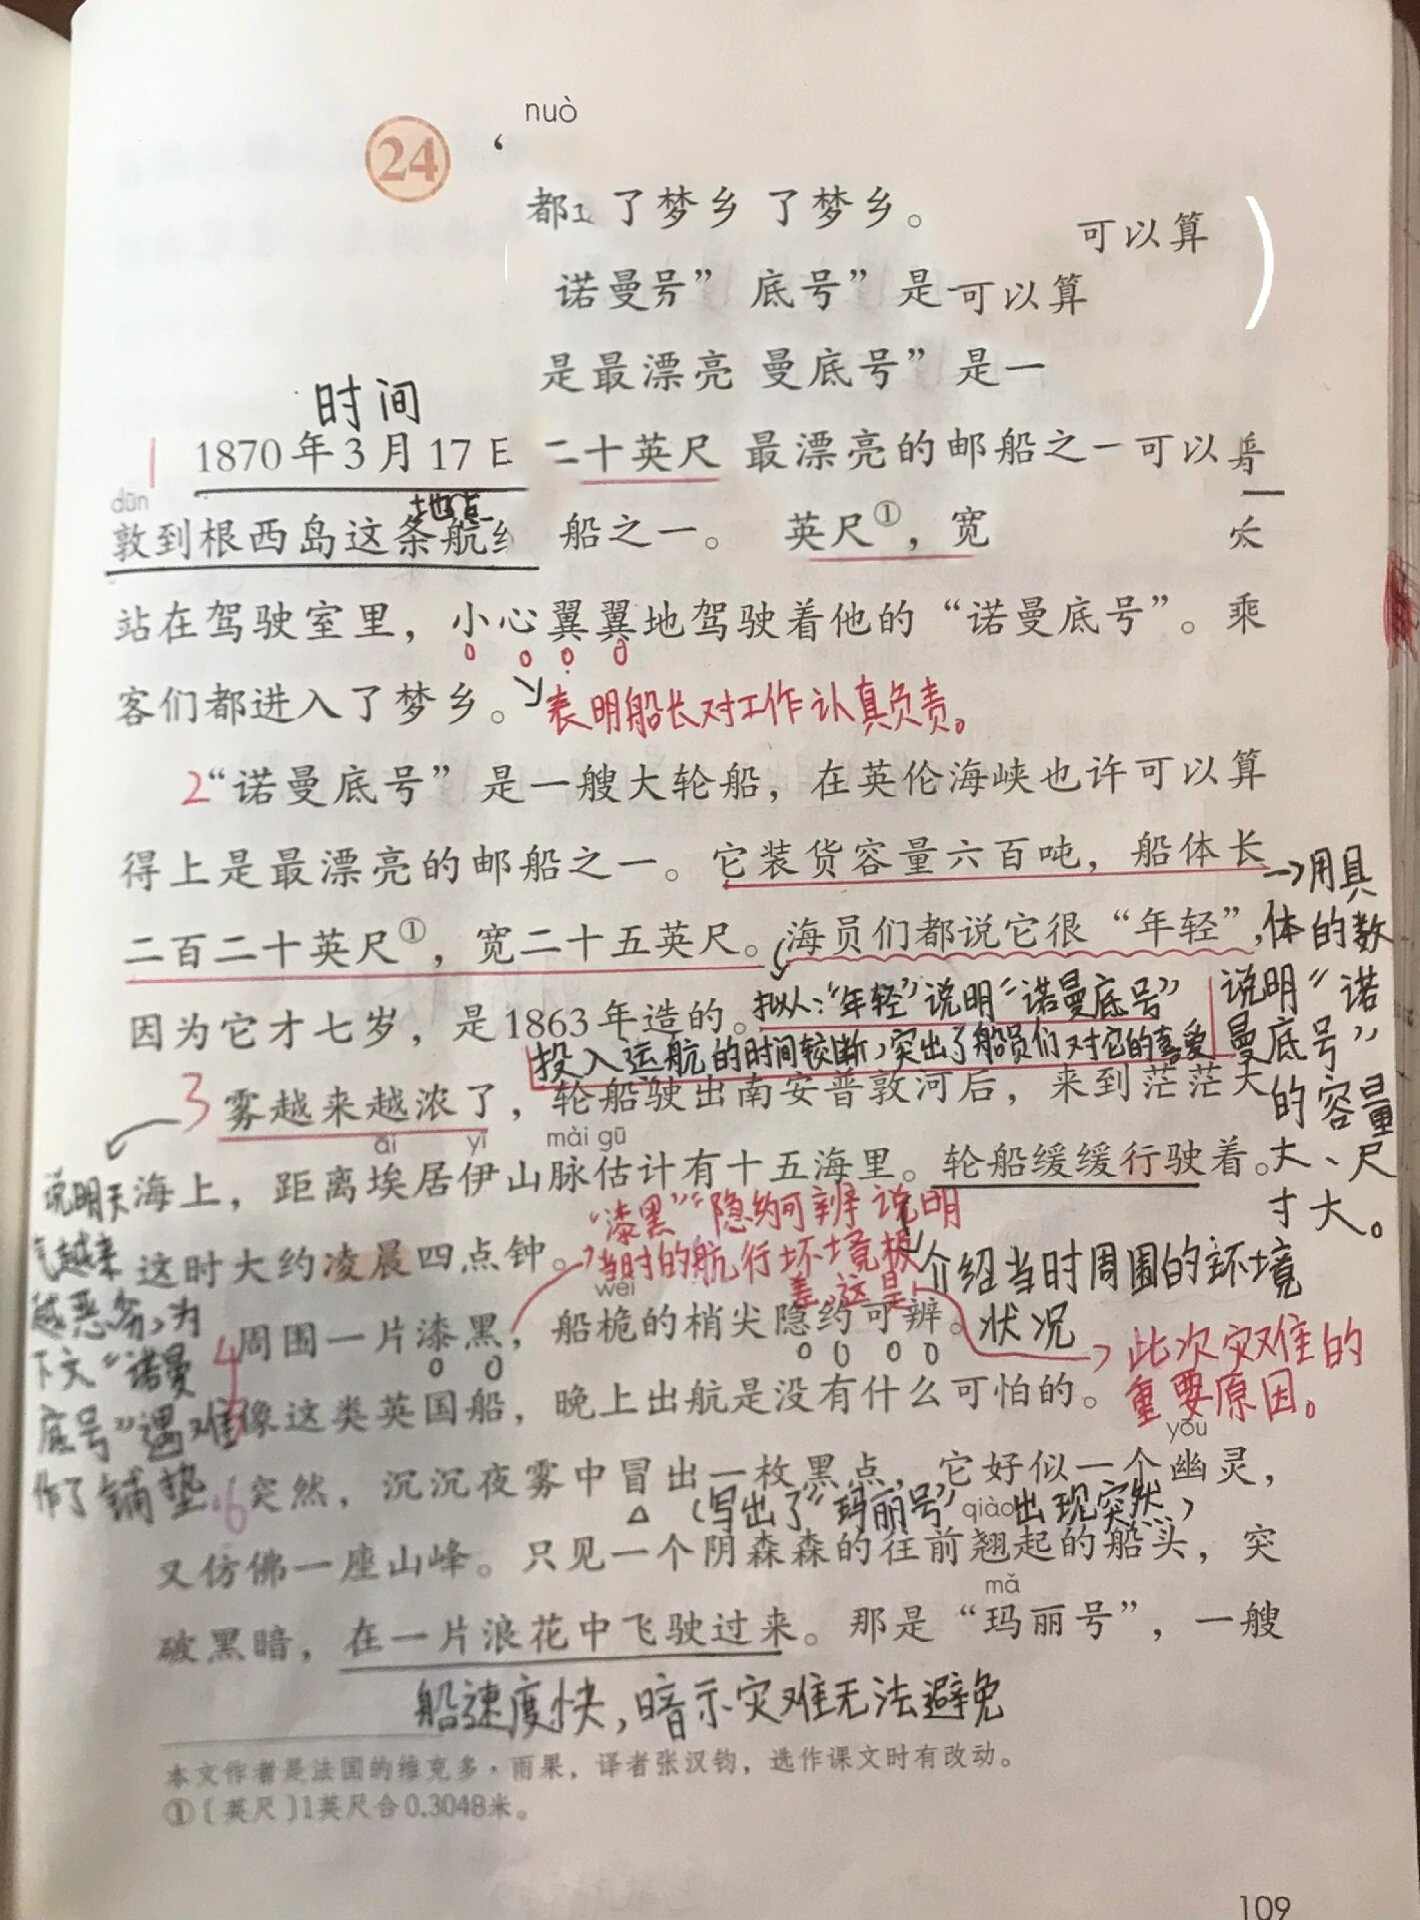 nuò
24 ‘
都 了梦乡 了梦乡。
可以算 )
诺曼号” 底号”是 可以算
是最漂亮 曼底号”是一
时间
1 1870年3月17日 二十英尺 最漂亮的邮船之一可以
dūn 地点
敦到根西岛这条航 船之一。 英尺①，宽
站在驾驶室里，小心翼翼地驾驶着他的“诺曼底号”。乘
客们都进入了梦乡。表明船长对工作认真负责。
2“诺曼底号”是一艘大轮船，在英伦海峡也许可以算
得上是最漂亮的邮船之一。它装货容量六百吨，船体长
二百二十英尺①，宽二十五英尺。海员们都说它很“年轻”，
因为它才七岁，是1863年造的。拟人：“年轻”说明“诺曼底号”
投入运航的时间较断，突出了船员们对它的喜爱
→用具
体的数
说明“诺
曼底号”
的容量
大、尺
寸大。
3 雾越来越浓了，轮船驶出南安普敦河后，来到茫茫大
āi yī mài gū
海上，距离埃居伊山脉估计有十五海里。轮船缓缓行驶着。
说明天
气越来
越恶劣，为
下文“诺曼
底号”遇难
作了铺垫.
“漆黑”“隐约可辨”说明
这时大约凌晨四点钟。当时的航行坏境极
差，这是
介绍当时周围的环境
状况
wéi
4 周围一片漆黑，船桅的梢尖隐约可辨。
→此次灾难的
重要原因。
像这类英国船，晚上出航是没有什么可怕的。
yōu
6 突然，沉沉夜雾中冒出一枚黑点，它好似一个幽灵，
（写出了“玛丽号”出现突然）
qiào
又仿佛一座山峰。只见一个阴森森的往前翘起的船头，突
mǎ
破黑暗，在一片浪花中飞驶过来。那是“玛丽号”，一艘
船速度快，暗示灾难无法避免
本文作者是法国的维克多·雨果，译者张汉钧，选作课文时有改动。
①〔英尺〕1英尺合0.3048米。
109